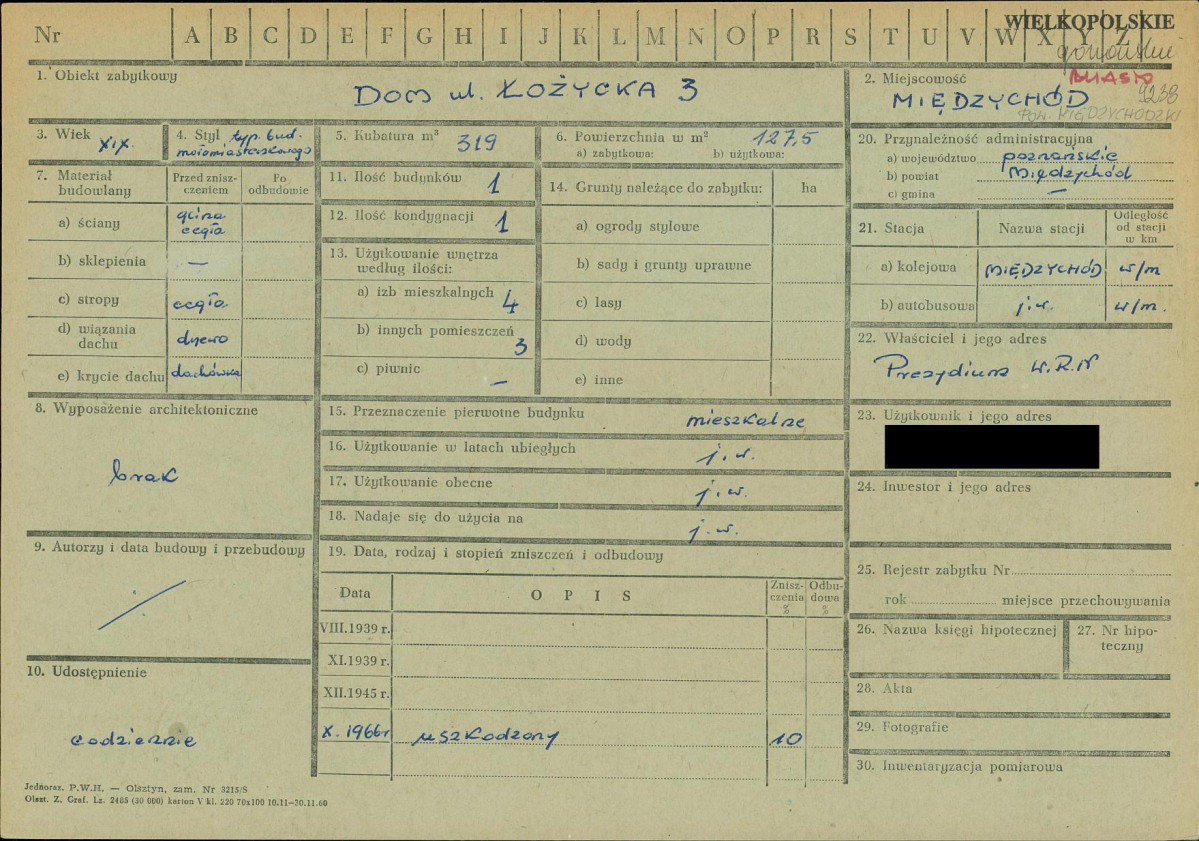 Nr A B C D E F G H I J K L M N O P R S T U V W X Y Z
WIELKOPOLSKIE
gorzowskie
1. Obiekt zabytkowy
DOM ul. ŁOŻYCKA 3
2. Miejscowość
MIASTO
MIĘDZYCHÓD
9238
POW. MIĘDZYCHODZKI
3. Wiek
XIX.
4. Styl typ. bud.
małomiasteczkowego
5. Kubatura m³
319
6. Powierzchnia w m²
127,5
a) zabytkowa: b) użytkowa:
7. Materiał budowlany
Przed znisz-
czeniem
Po
odbudowie
a) ściany
glina
cegła
b) sklepienia —
c) stropy cegła
d) wiązania
dachu drewno
e) krycie dachu dachówka
8. Wyposażenie architektoniczne
brak
9. Autorzy i data budowy i przebudowy
10. Udostępnienie
codziennie
11. Ilość budynków 1
12. Ilość kondygnacji 1
13. Użytkowanie wnętrza
według ilości:
a) izb mieszkalnych 4
b) innych pomieszczeń
3
c) piwnic —
14. Grunty należące do zabytku: ha
a) ogrody stylowe
b) sady i grunty uprawne
c) lasy
d) wody
e) inne
15. Przeznaczenie pierwotne budynku mieszkalne
16. Użytkowanie w latach ubiegłych j.w.
17. Użytkowanie obecne j.w.
18. Nadaje się do użycia na j.w.
19. Data, rodzaj i stopień zniszczeń i odbudowy
Data OPIS
Znisz-
czenia
%
Odbu-
dowa
%
VIII.1939 r.
XI.1939 r.
XII.1945 r.
X. 1966 r uszkodzony 10
20. Przynależność administracyjna
a) województwo poznańskie
b) powiat Międzychód
c) gmina —
21. Stacja Nazwa stacji
Odległość
od stacji
w km
a) kolejowa MIĘDZYCHÓD w/m
b) autobusowa j.w. w/m.
22. Właściciel i jego adres
Prezydium W.R.N
23. Użytkownik i jego adres
24. Inwestor i jego adres
25. Rejestr zabytku Nr
rok miejsce przechowywania
26. Nazwa księgi hipotecznej
27. Nr hipo-
teczny
28. Akta
29. Fotografie
30. Inwentaryzacja pomiarowa
Jednoraz. P.W.H. — Olsztyn, zam. Nr 3215/S
Olszt. Z. Graf. Lz. 2485 (30 000) karton V kl. 220 70x100 10.11—30.11.60